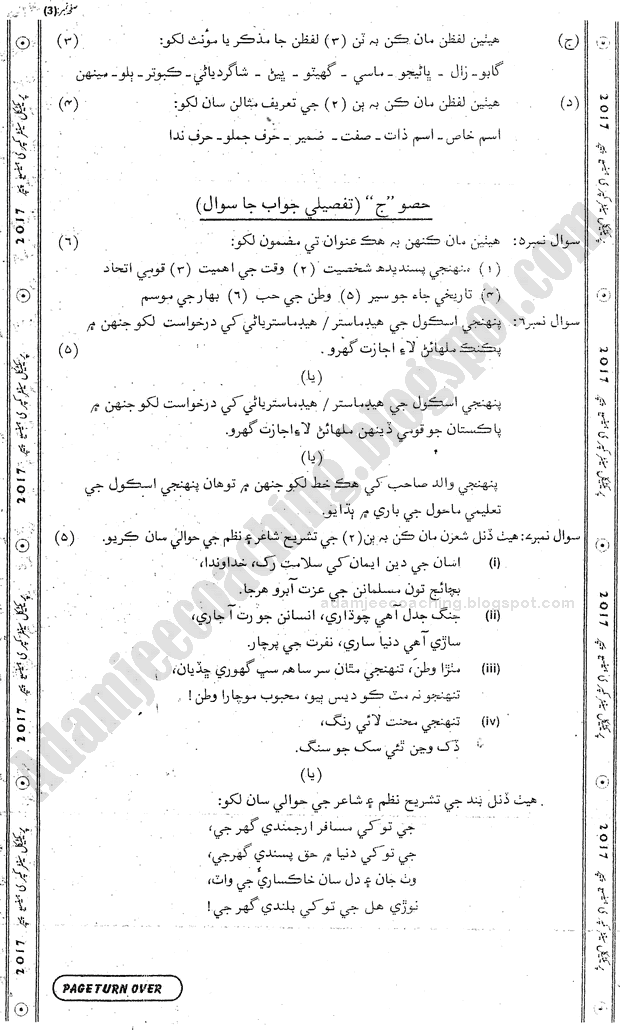 صفحہ نمبر:(3)
(ج) هيٺين لفظن مان ڪن به ٽن (٣) لفظن جا مذڪر يا مؤنث لکو: (٣)
گابو ـ زال ـ ڀاڻيجو ـ ماسي ـ گهيٽو ـ ڀيڻ ـ شاگردياڻي ـ ڪبوتر ـ ٻلو ـ مينهن
(د) هيٺين لفظن مان ڪن به ٻن (٢) جي تعريف مثالن سان لکو: (۴)
اسم خاص ـ اسم ذات ـ صفت ـ ضمير ـ حرف جملو ـ حرف ندا
حصو ”ج“ (تفصيلي جواب جا سوال)
سوال نمبر٥: هيٺين مان ڪنهن به هڪ عنوان تي مضمون لکو: (٦)
(١) منهنجي پسنديده شخصيت (٢) وقت جي اهميت (٣) قومي اتحاد
(۴) تاريخي جاءِ جو سير (٥) وطن جي حب (٦) بهار جي موسم
سوال نمبر٦: پنهنجي اسڪول جي هيڊماستر / هيڊماسترياڻي کي درخواست لکو جنهن ۾
پڪنڪ ملهائڻ لاءِ اجازت گهرو. (٥)
(يا)
پنهنجي اسڪول جي هيڊماستر / هيڊماسترياڻي کي درخواست لکو جنهن ۾
پاڪستان جو قومي ڏينهن ملهائڻ لاءِ اجازت گهرو.
(يا)
پنهنجي والد صاحب کي هڪ خط لکو جنهن ۾ توهان پنهنجي اسڪول جي
تعليمي ماحول جي باري ۾ ٻڌايو.
سوال نمبر٧: هيٺ ڏنل شعرن مان ڪن به ٻن(٢) جي تشريح شاعر ۽ نظم جي حوالي سان ڪريو. (٥)
(i) اسان جي دين ايمان کي سلامت رک، خداوندا،
بچائج تون مسلمانن جي عزت آبرو هرجا.
adamjeecoaching.blogspot.com
(ii) جنگ جدل آهي چوڌاري، انسانن جو رت آ جاري،
ساڙي آهي دنيا ساري، نفرت جي پرچار.
(iii) مٺڙا وطن، تنهنجي مٿان سر ساهه سڀ گهوري ڇڏيان،
تنهنجو نه مٽ ڪو ديس ٻيو، محبوب موچارا وطن!
(iv) تنهنجي محنت لائي رنگ،
ڏک وڃن ٿئي سک جو سنگ.
(يا)
هيٺ ڏنل بند جي تشريح نظم ۽ شاعر جي حوالي سان لکو:
جي توکي مسافر ارجمندي گهر جي،
جي توکي دنيا ۾ حق پسندي گهرجي،
وٺ جان ۽ دل سان خاڪساريءَ جي واٽ،
نوڙي هل جي توکي بلندي گهر جي!
PAGE TURN OVER
Adamjeecoaching.blogspot.com
2017
2017
2017
2017
2017
2017
2017
2017